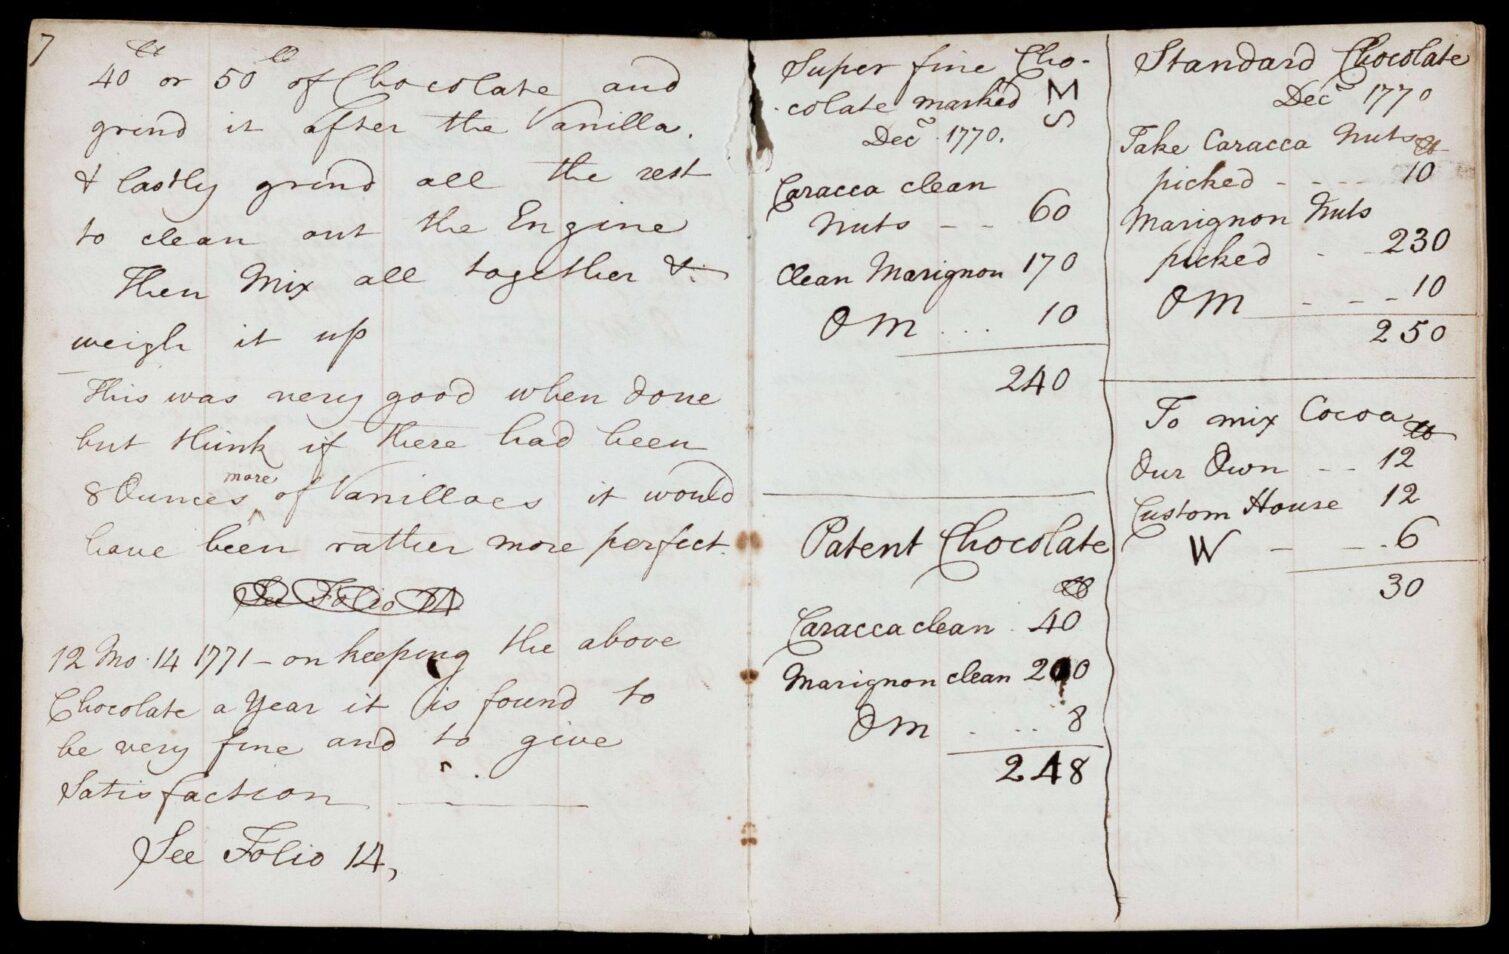 7
40 lb or 50 lb of Chocolate and
grind it after the Vanilla.
& lastly grind all the rest
to clean out the Engine
Then Mix all together &
weigh it up
This was very good when done
but think if there had been
8 Ounces more of Vanilloes it would
have been rather more perfect.
See Folio 14
12 Mo. 14 1771 - on keeping the above
Chocolate a Year it is found to
be very fine and to give
Satisfaction
See Folio 14,
Super fine Cho-
colate marked MS
Decr. 1770.
Caracca clean
Nuts - - 60
Clean Marignon 170
OM ... 10
240
Patent Chocolate
lb
Caracca clean . 40
Marignon clean 200
OM .... 8
248
Standard Chocolate
Decr 1770
Take Caracca Nuts lb
picked - - - - 10
Marignon Nuts
picked - - 230
OM - - - 10
250
To mix Cocoa lb
Our Own - - 12
Custom House 12
W - - - 6
30